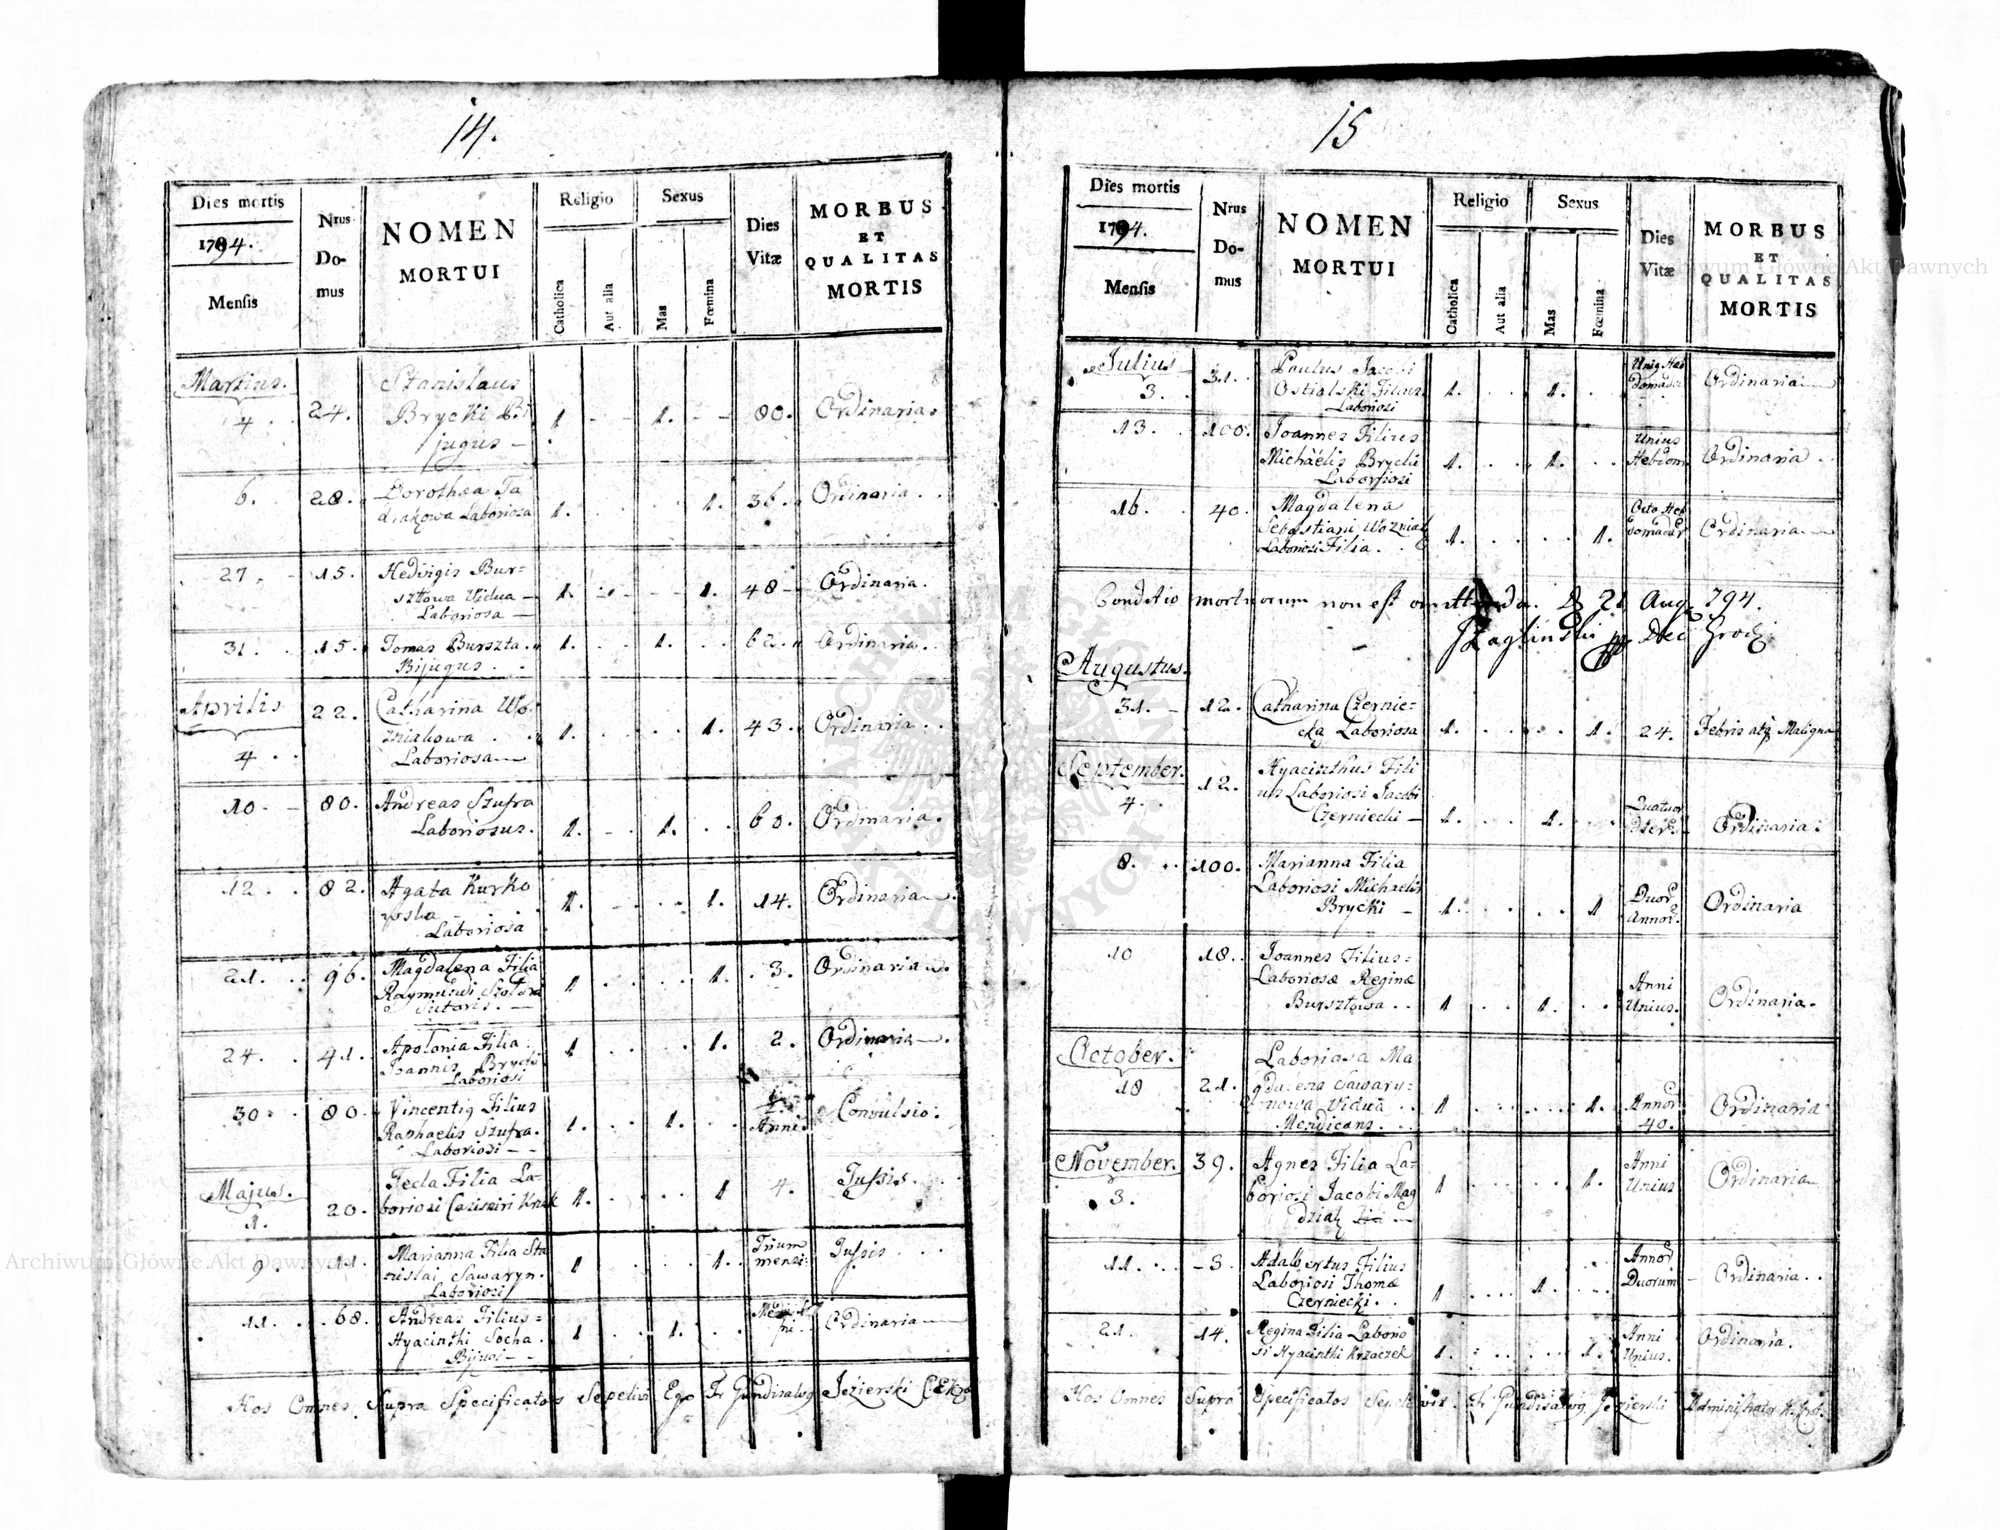 14.
Dies mortis
1794.
Mensis
Nrus
Do-
mus
NOMEN
MORTUI
Religio
Catholica
Aut alia
Sexus
Mas
Fœmina
Dies
Vitæ
MORBUS
ET
QUALITAS
MORTIS
Martius.
4 24. Stanislaus 1 - - 1. - - 80. Ordinaria.
Brycki Bi
jugus
6. 28. Dorothea Ta 1. 1. 36. Ordinaria
drakowa Laboriosa
27. 15. Hedvigis Bur= 1. 1. 48 Ordinaria.
sztowa Vidua
Laboriosa
31. 15. Tomas Burszta. 1. 1. 62. Ordinaria.
Bijugus
Aprilis
4 22. Catharina Wo= 1. 1. 43. Ordinaria
zniakowa
Laboriosa
10. 80. Andreas Szufra 1. 1. 60. Ordinaria.
Laboriosus.
12. 82. Agata Kurko 1. 1. 14. Ordinaria
wska
Laboriosa
21. 96. Magdalena Filia 1 1. 3. Ordinaria
Raymundi
Sutoris.
24. 41. Apolonia Filia 1 1. 2. Ordinaria
Joannis Brycki
Laboriosi
30. 80. Vincentig Filius 1. 1. Anni Convulsio.
Raphaelis Szufra.
Laboriosi
Majus.
1. 20. Tecla Filia La= 1. 1 4. Tussis.
boriosi Casimiri
9. 11. Marianna Filia Sta 1 1. Trium Tussis
nislai Sawaryn. mensi
Laboriosi
11. 68. Andreas Filius= 1 1. Ordinaria
Hyacinthi Socha.
Bijugi
Hos Omnes Supra Specificatos Sepelivi Ego Fr Gundisalvg Jezierski
15
Dies mortis
1794.
Mensis
Nrus
Do-
mus
NOMEN
MORTUI
Religio
Catholica
Aut alia
Sexus
Mas
Fœmina
Dies
Vitæ
MORBUS
ET
QUALITAS
MORTIS
Julius
3. 31. Paulus Jacobi 1. 1. Unig Heb Ordinaria
Ostialski Filius domadæ
Laboriosi
13. 100. Joannes Filius 1. 1. Unius Ordinaria
Michaëlis Brycki Hebdom
Laboriosi
16. 40. Magdalena 1. 1. Octo Heb Ordinaria
Sebastiani Wozniak domadar
Laboriosi Filia.
Conditio mortuorum non est omittenda. D 21 Aug 794.
Augustus.
31. 12. Catharina Czernie= 1. 1. 24. Febris atq Maligna
cka Laboriosa
September.
4. 12. Hyacinthus Fili 1. 1. Quatuor Ordinaria.
us Laboriosi Jacobi Dier
Czerniecki
8. 100. Marianna Filia 1. 1 Duor Ordinaria
Laboriosi Michaelis Annor.
Brycki
10 18. Joannes Filius= 1 1. Anni Ordinaria.
Laboriosæ Reginæ Unius.
Bursztowa
October.
18 21. Laboriosa Ma 1 1. Annor Ordinaria
gdalena Sawary= 40.
nowa Vidua
Mendicans.
November.
3. 39. Agnes Filia La= 1 1. Anni Ordinaria
boriosi Jacobi Mag Unius
dziak
11. 3. Adalbertus Filius 1 1. Annor Ordinaria
Laboriosi Thomæ Duorum
Czerniecki.
21. 14. Regina Filia Laborio 1. 1. Anni Ordinaria.
si Hyacinthi Krzaczek Unius.
Hos Omnes Supra Specificatos Sepelivit Fr Gundisalvg Jezierski Administrator
Archiwum Główne Akt Dawnych
Archiwum Główne Akt Dawnych
ARCHIWUM GŁÓWNE AKT DAWNYCH